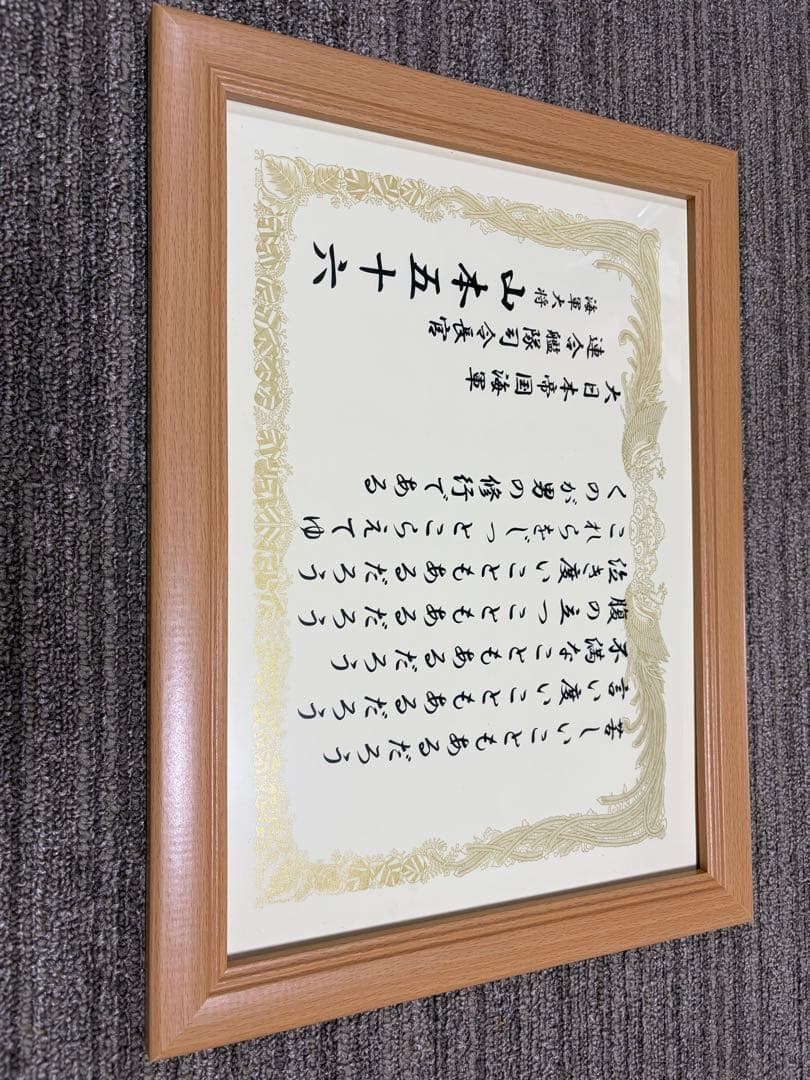 苦しいこともあるだろう
言い度いこともあるだろう
不満なこともあるだろう
腹の立つこともあるだろう
泣き度いこともあるだろう
これらをじっとこらえてゆ
くのが男の修行である
大日本帝国海軍
連合艦隊司令長官
海軍大将
山本五十六